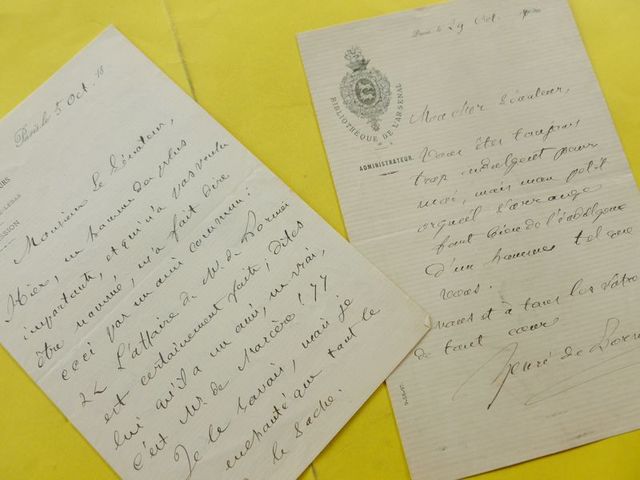 Paris le 5 Oct. 78
Monsieur le Sénateur,
Hier, un homme des plus
importants, et qui n'a pas voulu
être nommé, m'a fait dire
ceci par un ami commun :
"L'affaire de M. de Bornier
est certainement faite ; dites
lui qu'il a un ami, un vrai,
c'est Mr. de Marcère ! "
Je le savais, mais je
enchanté que tout le
le sache.
SSION
Paris, le 29 Oct.
BIBLIOTHÈQUE DE L'ARSENAL
ADMINISTRATEUR
Mon cher Sénateur,
Vous êtes toujours
trop indulgent pour
moi, mais mon petit
orgueil s'arrange
fort bien de l'indulgence
d'un homme tel que
vous.
à vous et à tous les vôtres
de tout coeur
Henri de Born